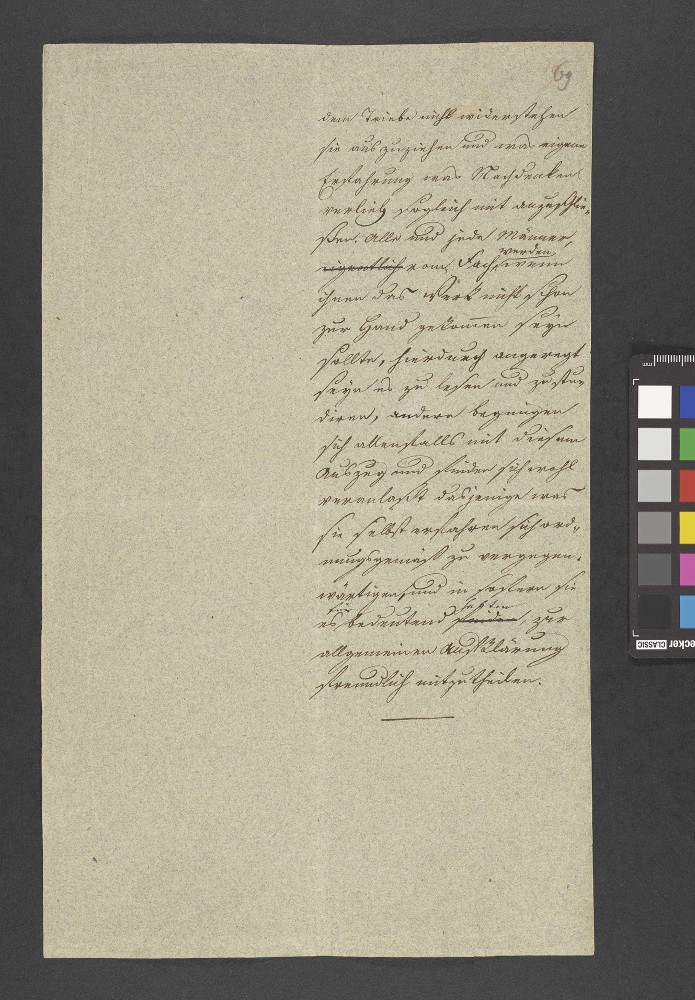 69
dem Triebe nicht widerstehen
sie auszuziehen und was eigene
Erfahrung was Nachdenken
verlieh sogleich mit anzuschlie-
ßen. Alle und jede Männer,
werden
eigentlich vom Fach, wenn
ihnen das Werk nicht schon
zur Hand gekommen seyn
sollte, hierdurch angeregt
seyn es zu lesen und zu stu-
diren, andere begnügen
sich allenfalls mit diesem
Auszug und finden sich wohl
veranlaßt dasjenige was
sie selbst erfahren sich ord-
nungsgemäß zu vergegen-
wärtigen, und in sofern sie
für halten
es bedeutend finden, zur
allgemeinen Aufklärung
freundlich mitzutheilen.
mm
CLASSIC